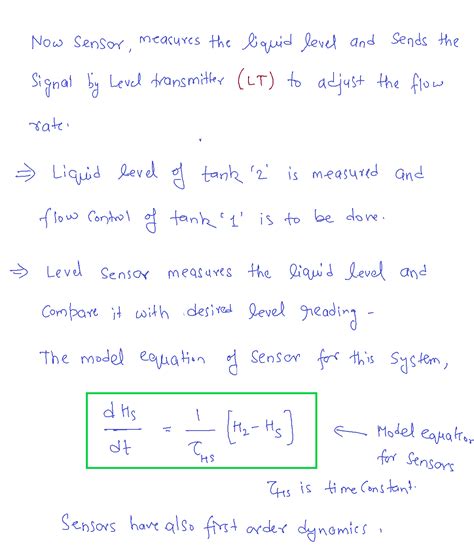 Now sensor, measures the liquid level and sends the
signal by Level transmitter (LT) to adjust the flow
rate.
⇒ Liquid level of tank '2' is measured and
flow control of tank '1' is to be done.
⇒ Level sensor measures the liquid level and
Compare it with desired level reading -
The model equation of sensor for this system,
dHs/dt = 1/τHs [H2 - Hs] ← Model equation
for sensors
τHs is time constant.
Sensors have also first order dynamics.